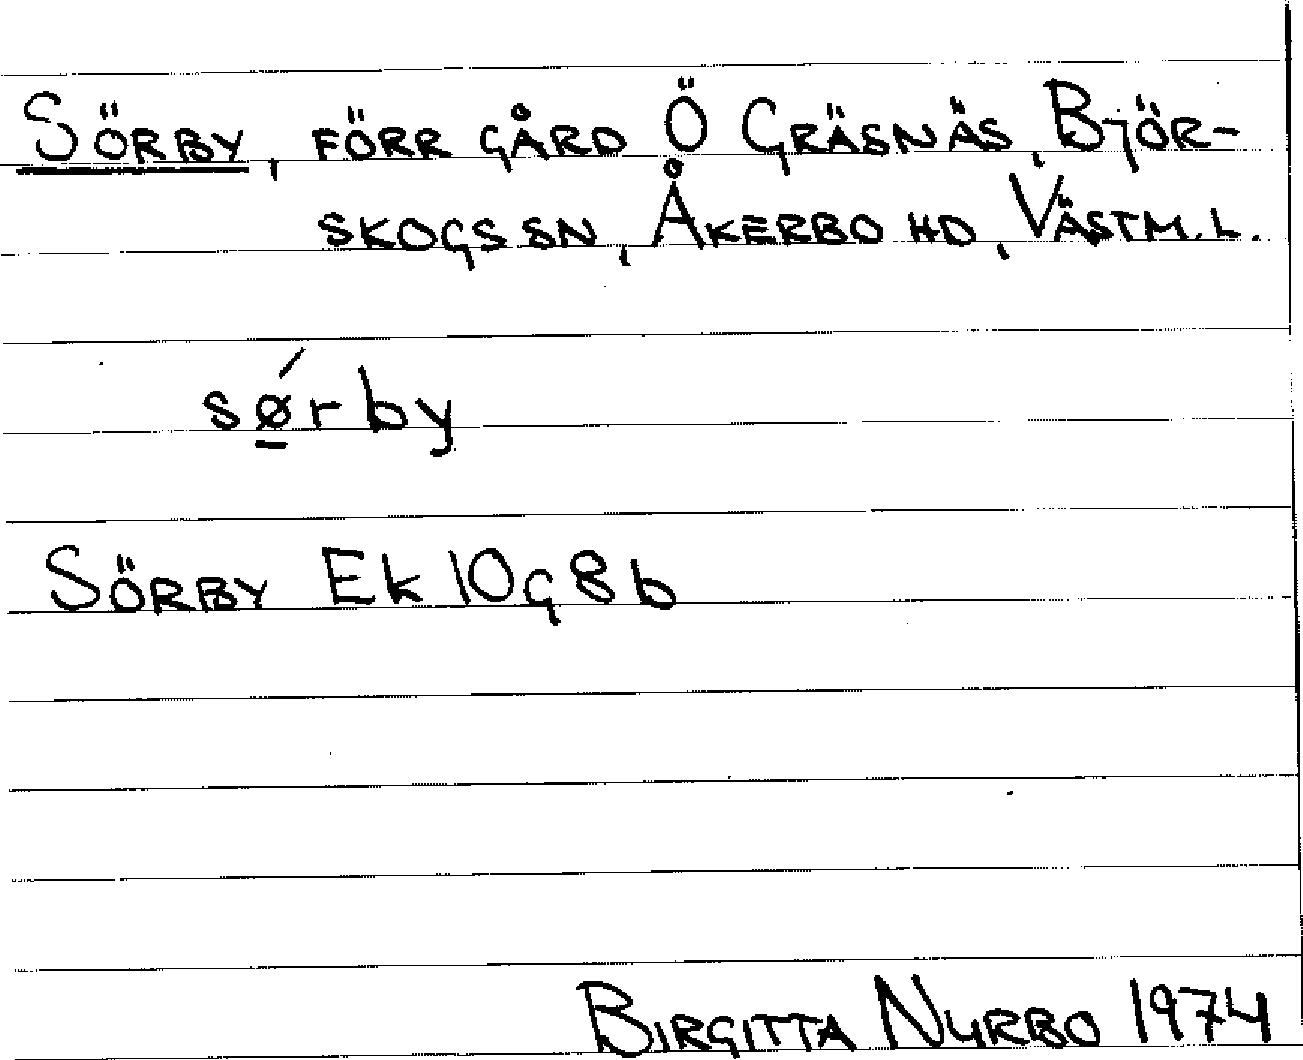 SÖRBY, FÖRR GÅRD Ö GRÄSNÄS, BJÖR-
SKOGS SN, ÅKERBO HD, VÄSTM.L.
sǿ̲rby
SÖRBY Ek 10g8b
BIRGITTA NYRBO 1974